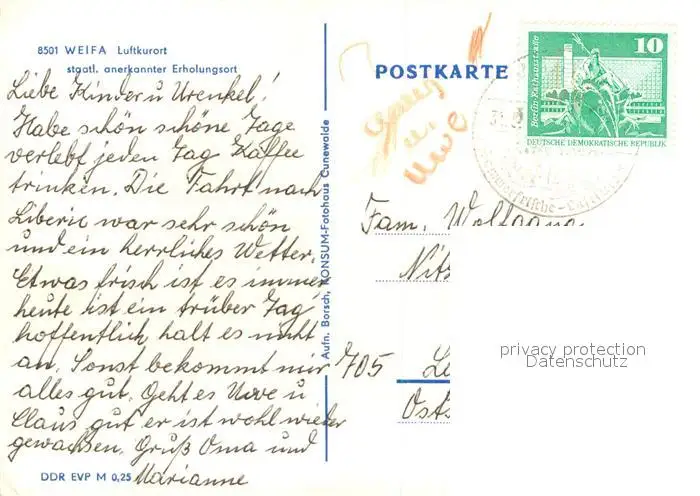 8501 WEIFA Luftkurort
staatl. anerkannter Erholungsort
Liebe Kinder u Urenkel!
Habe schön schöne Tage
verlebt jeden Tag Kaffee
trinken. Die Fahrt nach
Liberic war sehr schön
und ein herrliches Wetter.
Etwas frisch ist es immer
heute ist ein trüber Tag
hoffentlich halt es nicht
an. Sonst bekommt mir
alles gut. Geht es Uwe u
Claus gut er ist wohl wieder
gewachsen. Gruß Oma und
Marianne
DDR EVP M 0,25
Aufn. Borsch, KONSUM-Fotohaus Cunewalde
POSTKARTE
u.
Uwe
10
Berlin-Rathausstraße
DEUTSCHE DEMOKRATISCHE REPUBLIK
Fam. Wolfgang
Nits
705 Le
Osts
privacy protection
Datenschutz